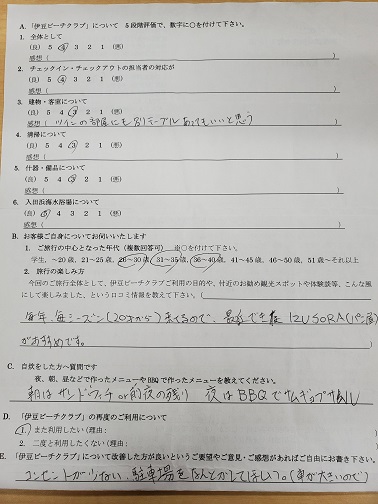 A. 「伊豆ビーチクラブ」について 5段階評価で、数字に○を付けて下さい。
1. 全体として
(良) 5 4 3 2 1 (悪)
感想 ( )
2. チェックイン・チェックアウトの担当者の対応が
(良) 5 4 3 2 1 (悪)
感想 ( )
3. 建物・客室について
(良) 5 4 3 2 1 (悪)
感想 ( ツインの部屋にも別テーブルあってもいいと思う )
4. 清掃について
(良) 5 4 3 2 1 (悪)
感想 ( )
5. 什器・備品について
(良) 5 4 3 2 1 (悪)
感想 ( )
6. 入田浜海水浴場について
(良) 5 4 3 2 1 (悪)
感想 ( )
B. お客様ご自身についてお伺いいたします
1. ご旅行の中心となった年代 (複数回答可) ※○を付けて下さい。
学生、~20歳、21~25歳、26~30歳、31~35歳、36~40歳、41~45歳、46~50歳、51歳~それ以上
2. 旅行の楽しみ方
今回のご旅行全体として、伊豆ビーチクラブご利用の目的や、付近のお勧め観光スポットや体験談等、こんな風
にして楽しみました、という口コミ情報を教えて下さい。(
毎年、毎シーズン(20才から)来てるので、最近できた IZUSORA(パン屋)
がおすすめです。 )
C. 自炊をした方へ質問です
夜、朝、昼などで作ったメニューやBBQで作ったメニューを教えてください。
朝はサンドウィッチ or 前夜の残り 夜はBBQでサムギョプサル
D. 「伊豆ビーチクラブ」の再度のご利用について
1. また利用したい (理由: )
2. 二度と利用したくない (理由: )
E. 「伊豆ビーチクラブ」について改善した方が良いというご要望やご意見・ご感想があればご自由にお書き下さい。
コンセントが少ない、駐車場をなんとかしてほしい。(車が大きいので)